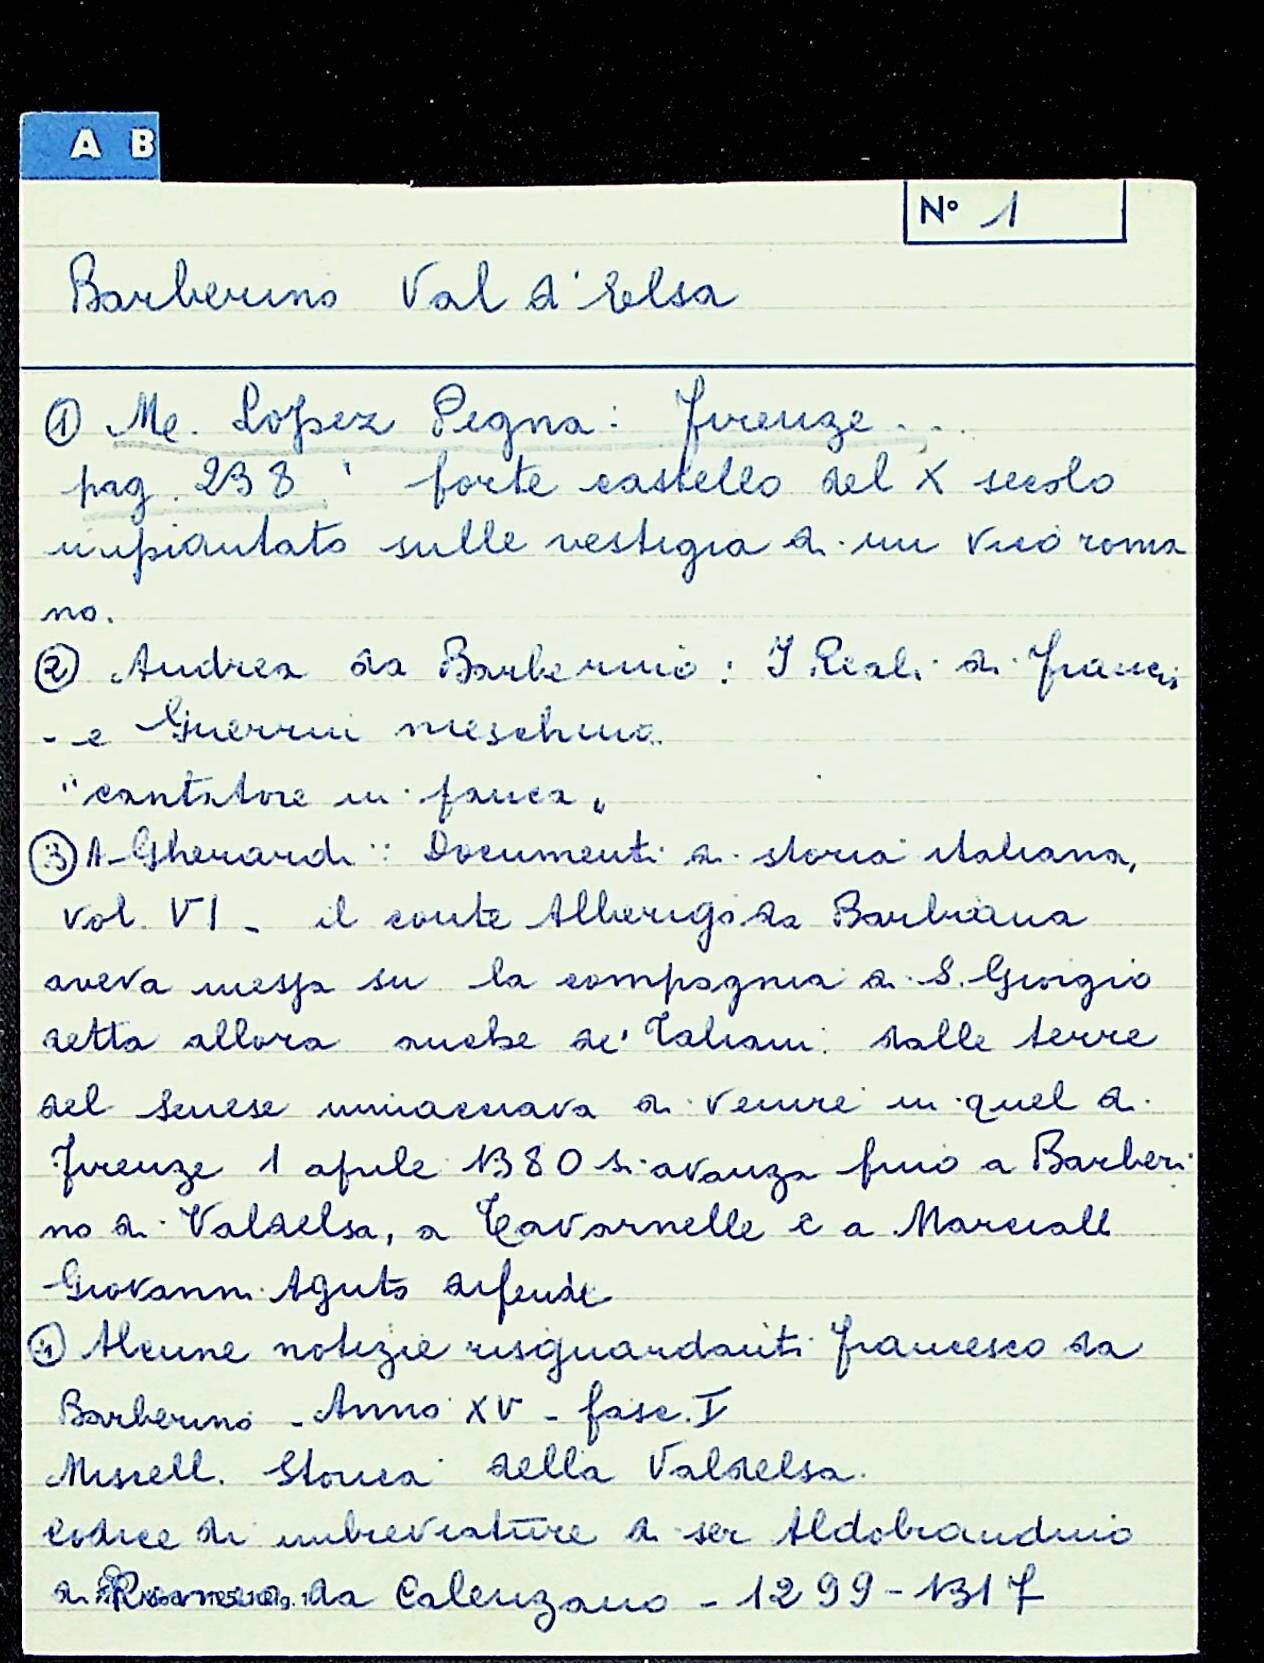 A B
N° 1
Barberino Val d'Elsa
① Me. Lopez Pegna: Firenze...
pag. 238 ' forte castello del X secolo
impiantato sulle vestigia di un vico roma
no.
② Andrea da Barberino: I Reali di Francia
- e Guerrin meschino.
"cantatore in panca"
③ A. Gherardi: Documenti di storia italiana,
vol. VI - il conte Alberigo da Barbiana
aveva messa su la compagnia di S. Giorgio
detta allora anche de' Taliani. dalle terre
del senese minacciava di venire in quel di
Firenze 1 aprile 1380 si avanza fino a Barberi
no di Valdelsa, a Tavarnelle e a Marciall
Giovanni Aguto difende
④ Alcune notizie risguardanti Francesco da
Barberino - Anno XV - fasc. I
Miscell. Storica della Valdelsa.
Codice di imbreviature di ser Aldobrandino
di da Calenzano - 1299-1317